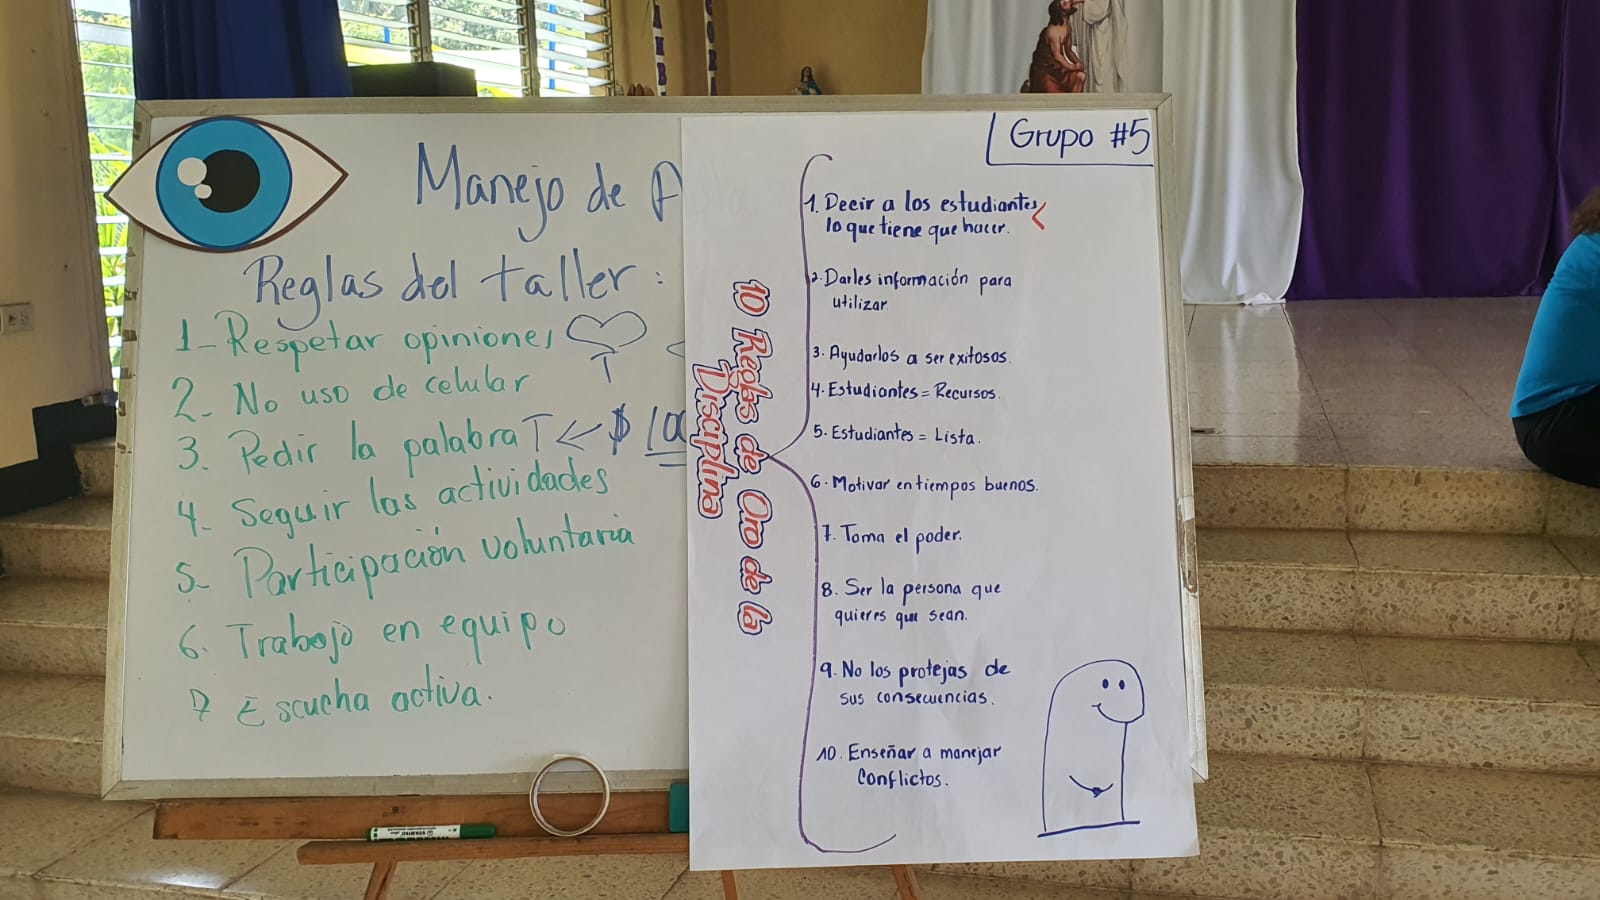 Manejo de A
Reglas del taller:
1- Respetar opiniones
T
2- No uso de celular
3. Pedir la palabra T ← $ 100
4- Seguir las actividades
5- Participación voluntaria
6. Trabajo en equipo
7 Escucha activa.
Grupo #5
10 Reglas de Oro de la
Disciplina
1. Decir a los estudiantes
lo que tiene que hacer.
2. Darles información para
utilizar
3. Ayudarlos a ser exitosos.
4. Estudiantes = Recursos.
5. Estudiantes = Lista.
6. Motivar en tiempos buenos.
7. Toma el poder.
8. Ser la persona que
quieres que sean.
9. No los protejas de
sus consecuencias.
10. Enseñar a manejar
conflictos.